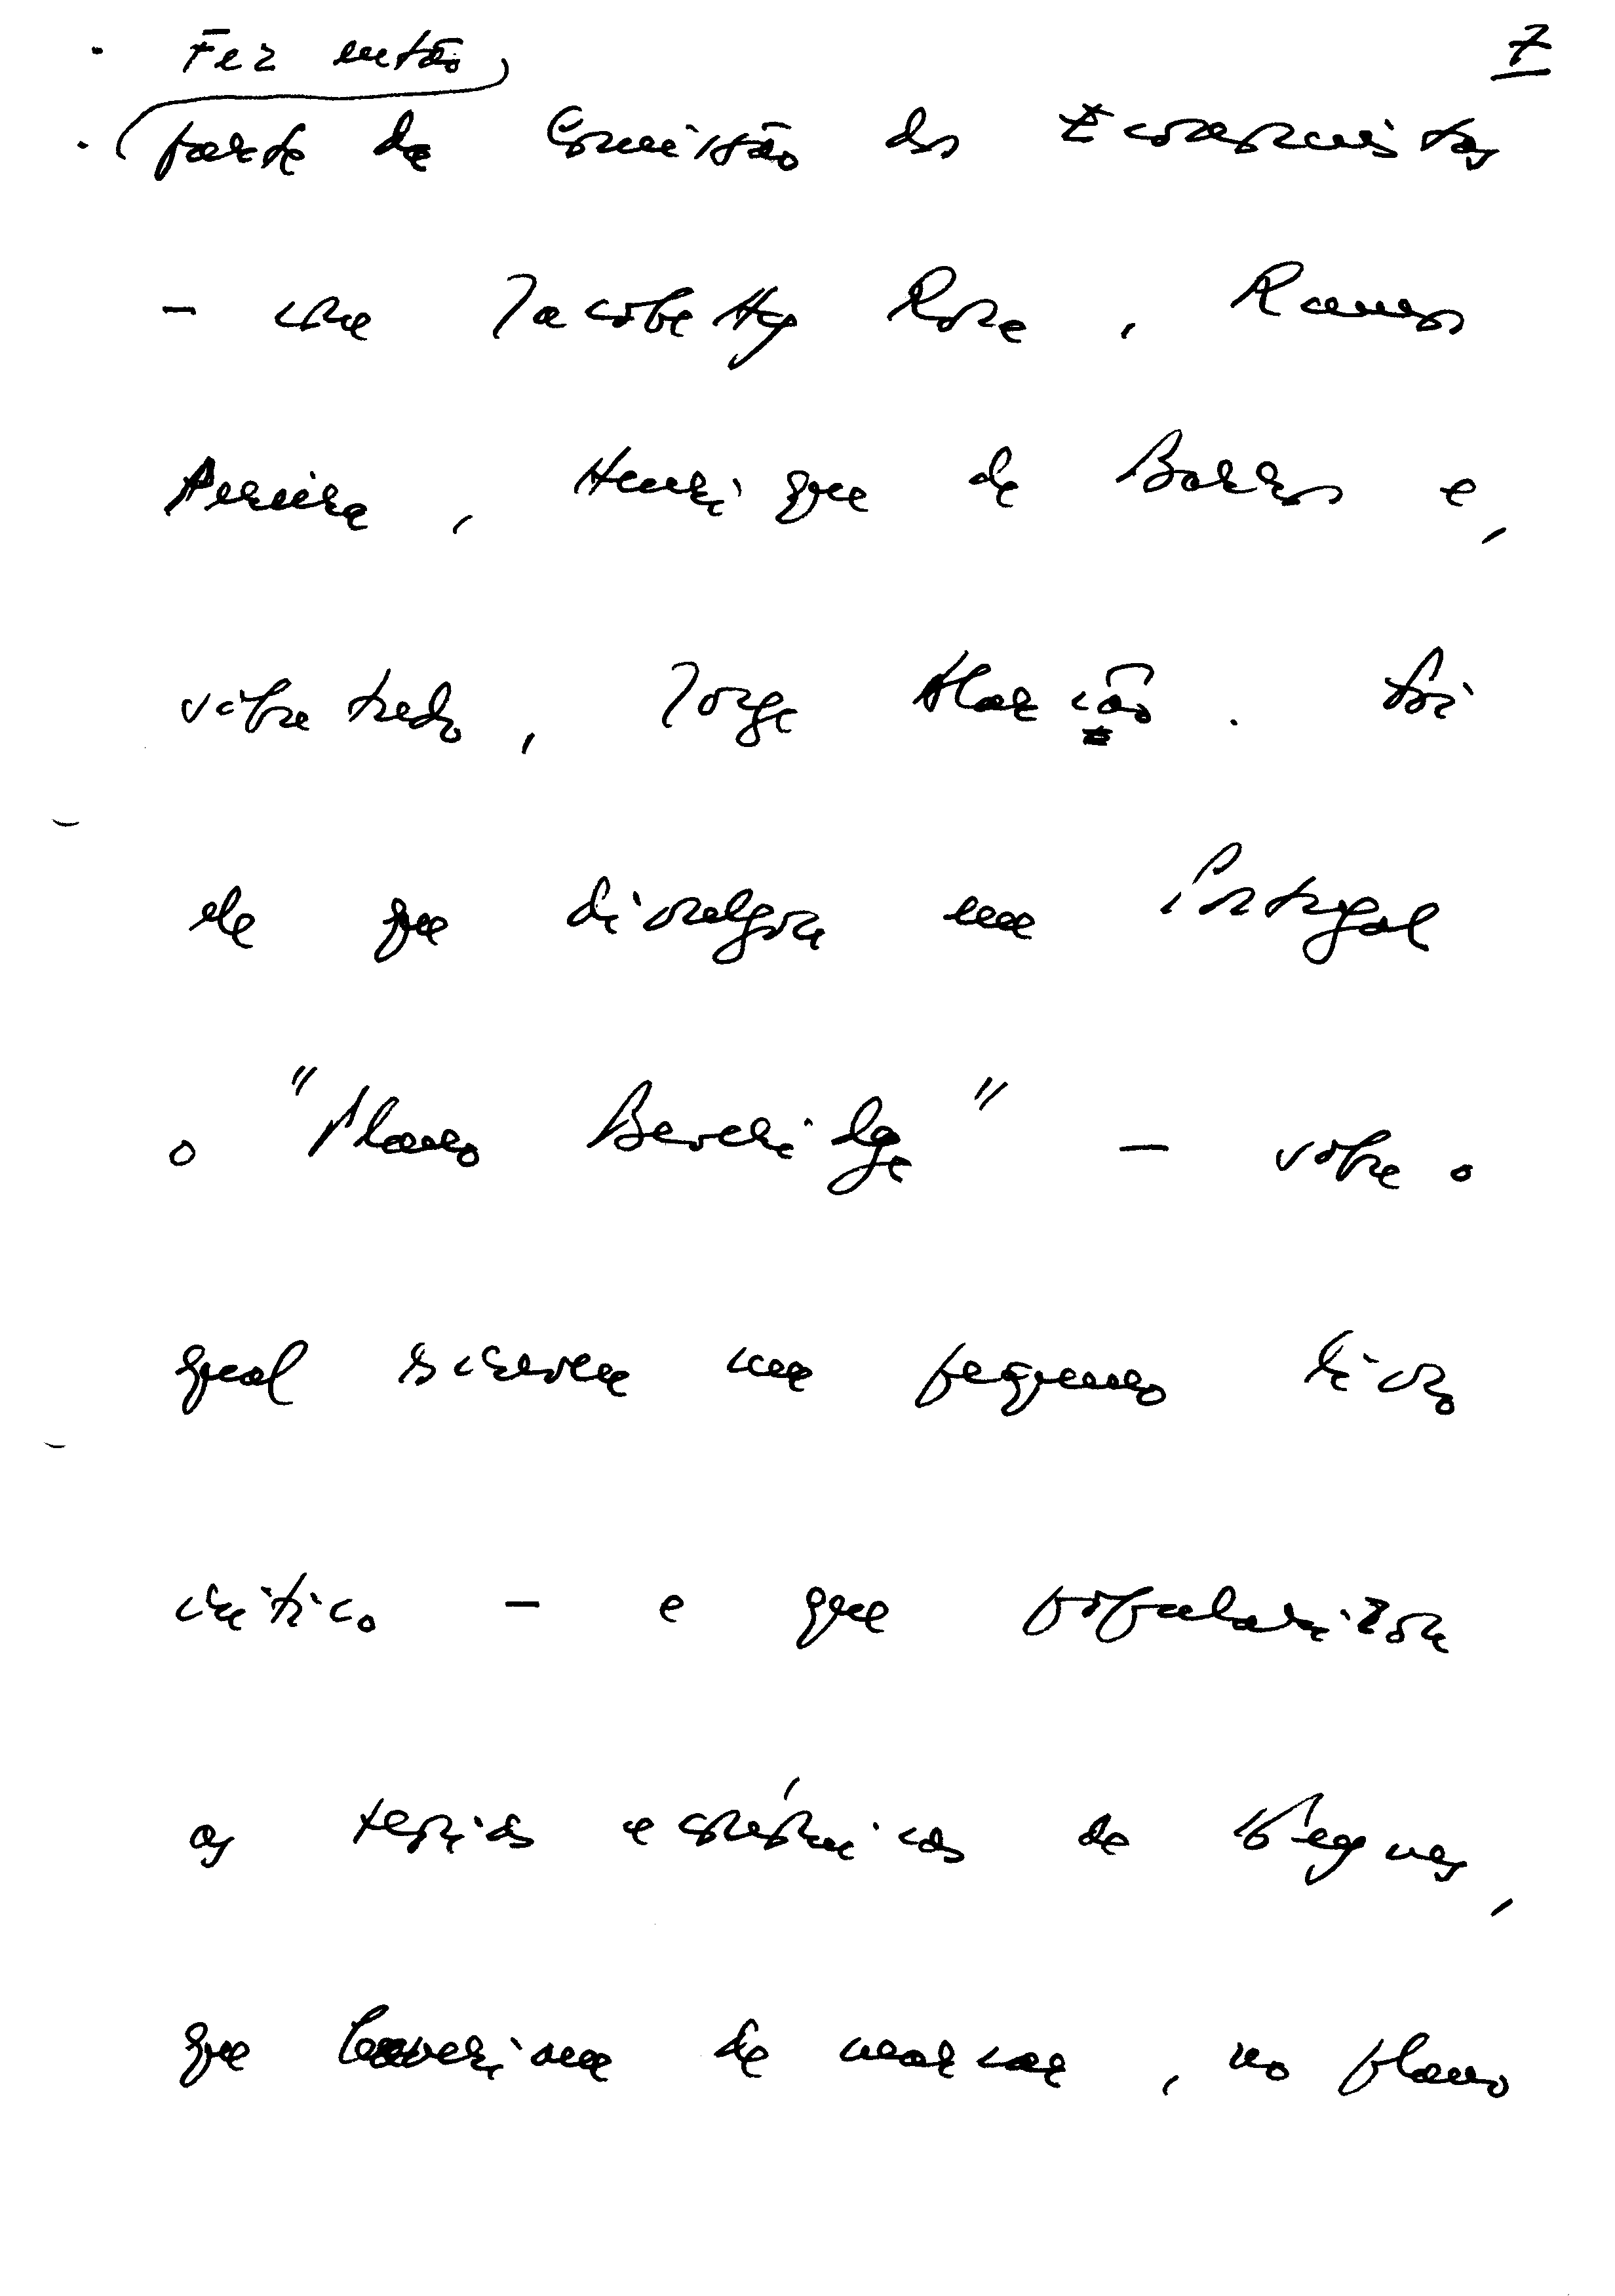 7
Fez então
parte da Comissão dos Economistas
- com Jacobetty Rosa, Ramos
Pereira, Henrique de Barros e,
sobretudo, Jorge Alarcão. Foi
ele que divulgou em Portugal
o "Plano Beveridge" - sobre o
qual escreveu um pequeno livro
crítico - e que popularizou
as teorias económicas de Keynes,
que haveriam de marcar, no plano